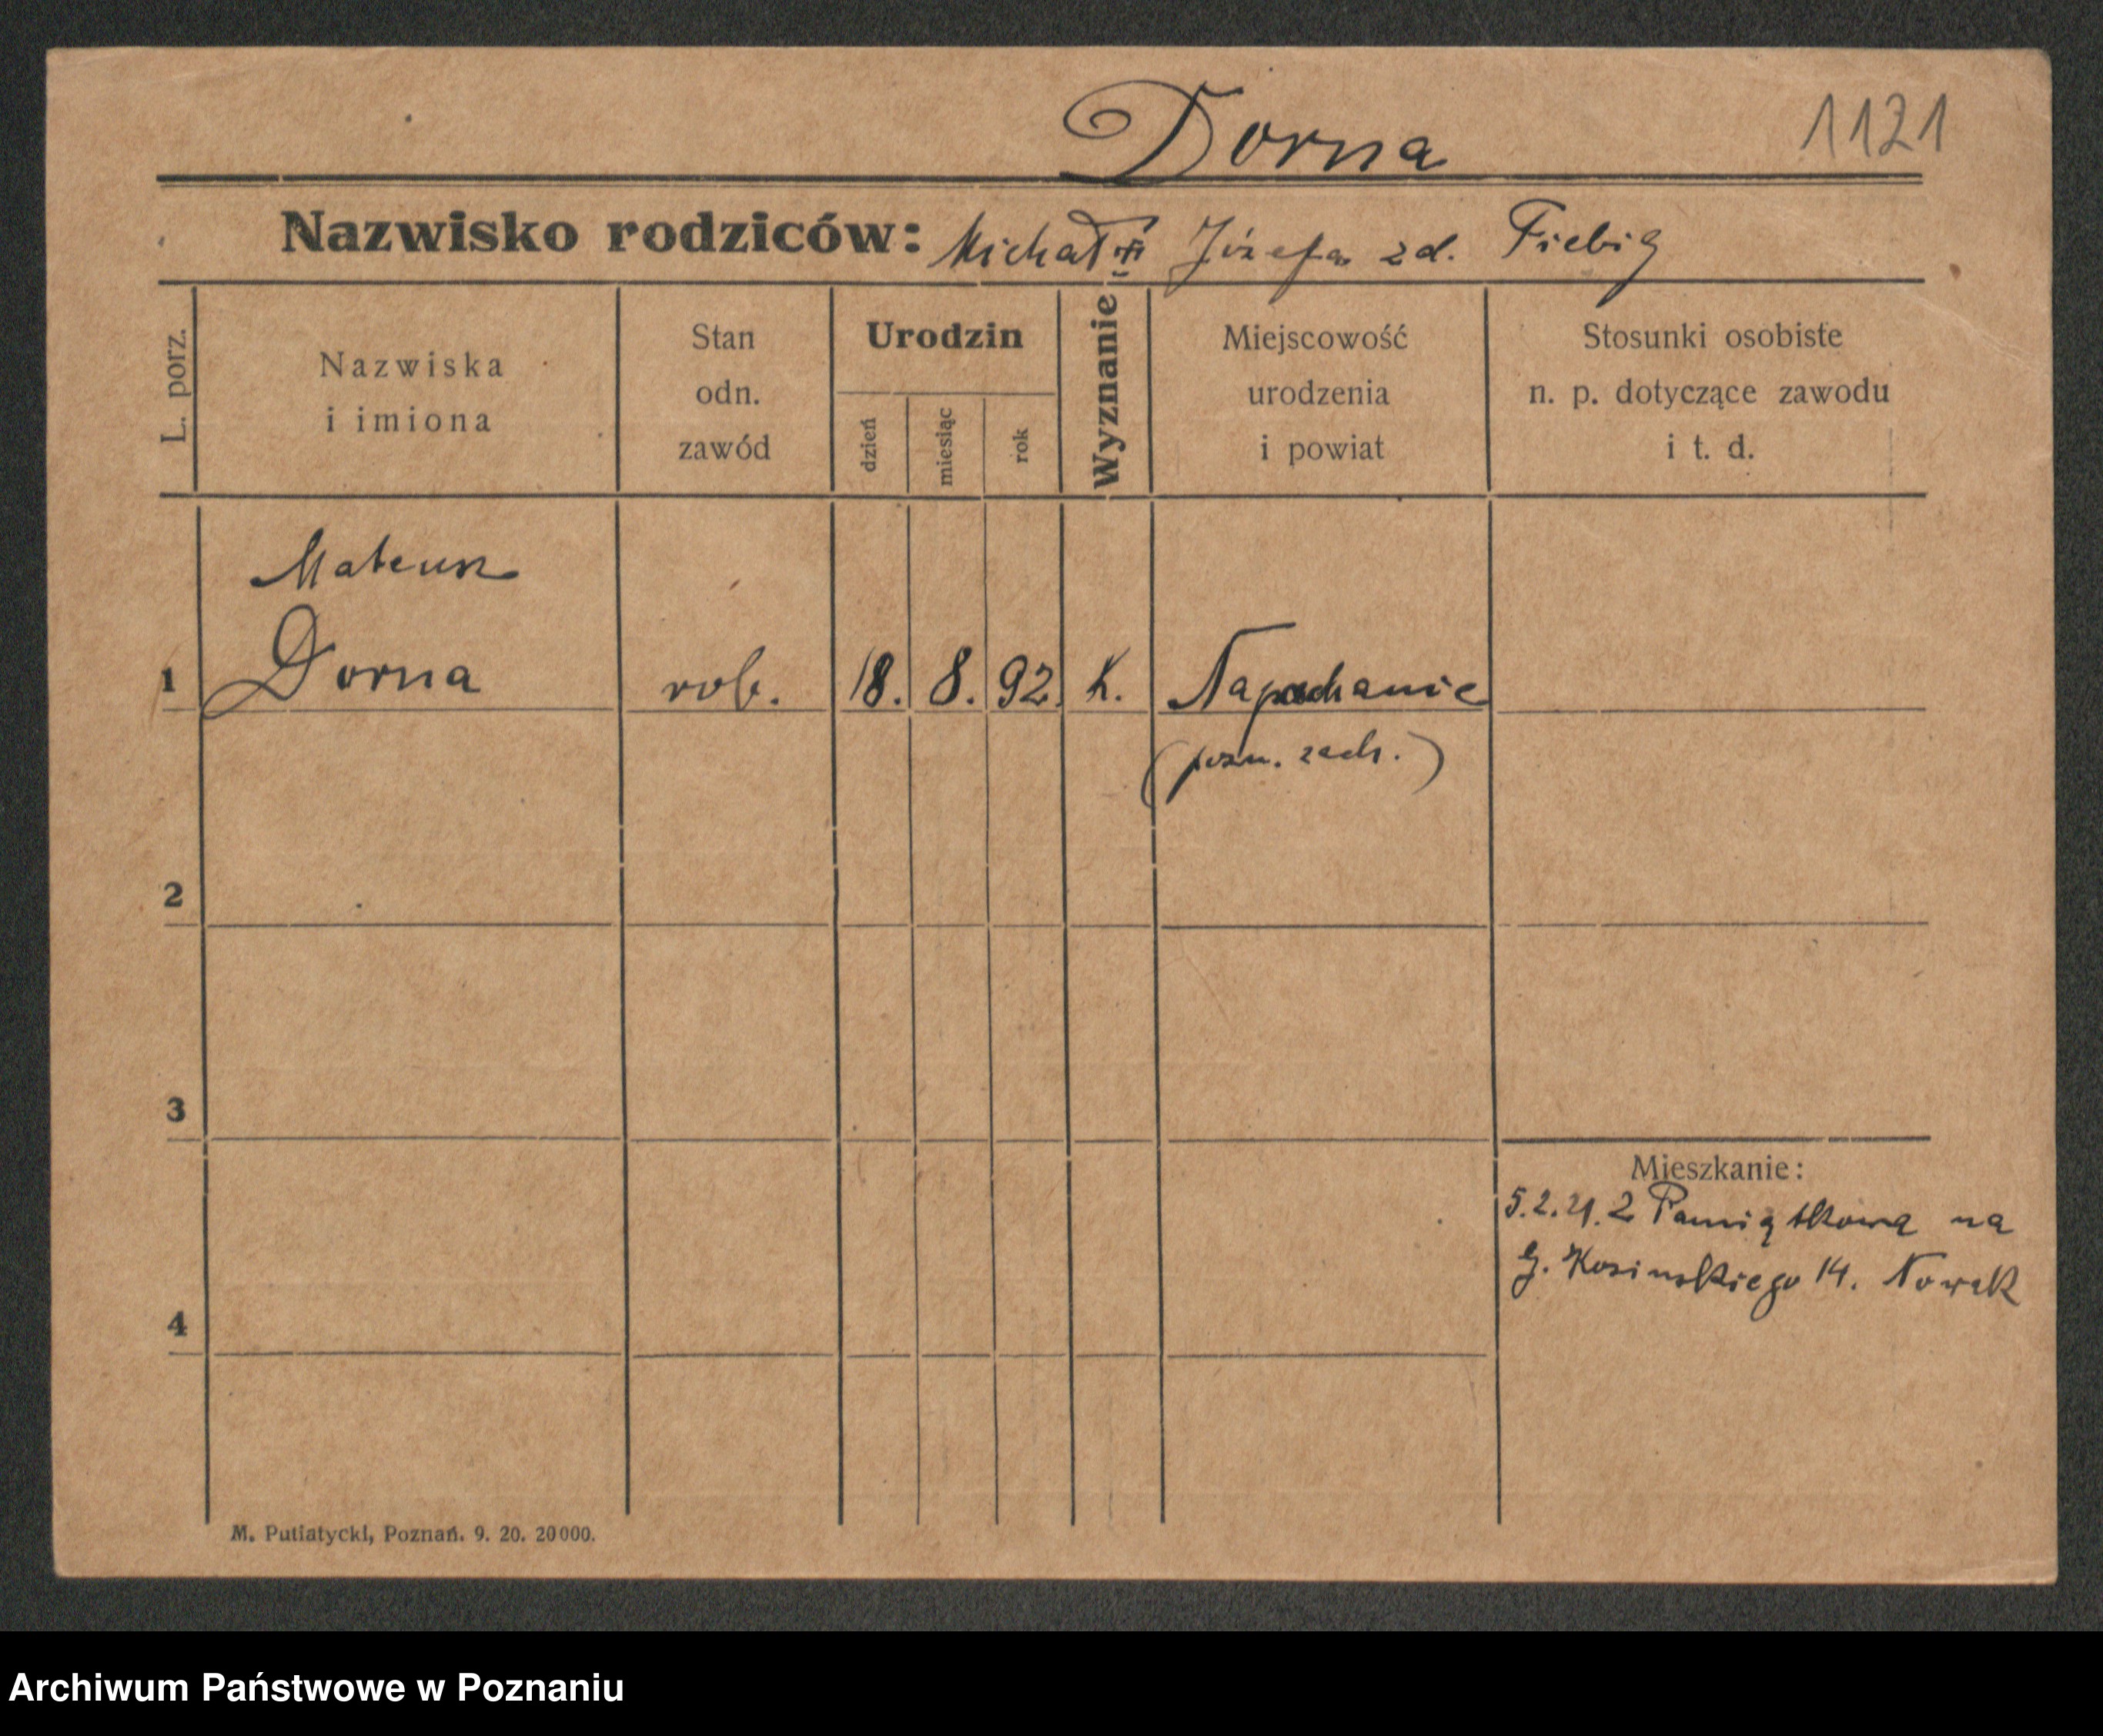 Dorna 1121
Nazwisko rodziców: Michał Józefa zd. Fiebig
L. porz.
Nazwiska
i imiona
Stan
odn.
zawód
Urodzin
dzień
miesiąc
rok
Wyznanie
Miejscowość
urodzenia
i powiat
Stosunki osobiste
n. p. dotyczące zawodu
i t. d.
Mateusz
1 Dorna rob. 18. 8. 92. k. Napachanie
(pozn. zach.)
2
3
Mieszkanie:
5.2.21. 2 Pamiątkowa na
G. Kosinskiego 14. Nowak
4
M. Putiatycki, Poznań. 9. 20. 20000.
Archiwum Państwowe w Poznaniu